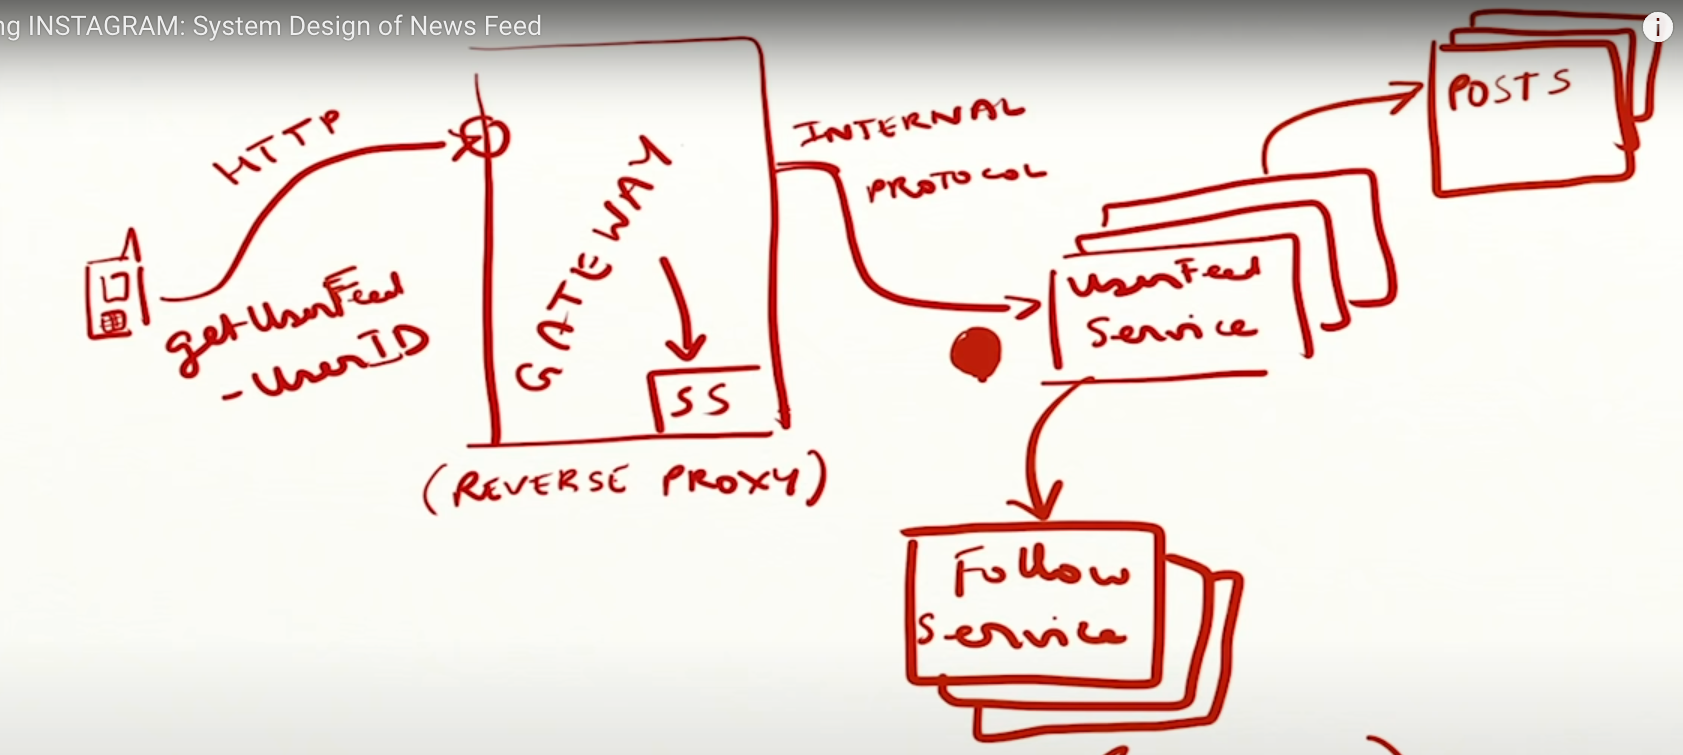 ng INSTAGRAM: System Design of News Feed
i
HTTP
getUserFeed
- UserID
GATEWAY
SS
(REVERSE PROXY)
INTERNAL
PROTOCOL
UserFeed
Service
POSTS
Follow
Service